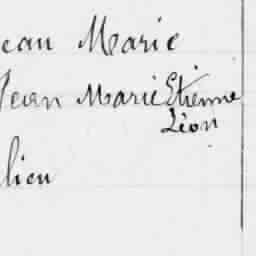 ean Marie
Jean Marie Etienne
Léon
lien